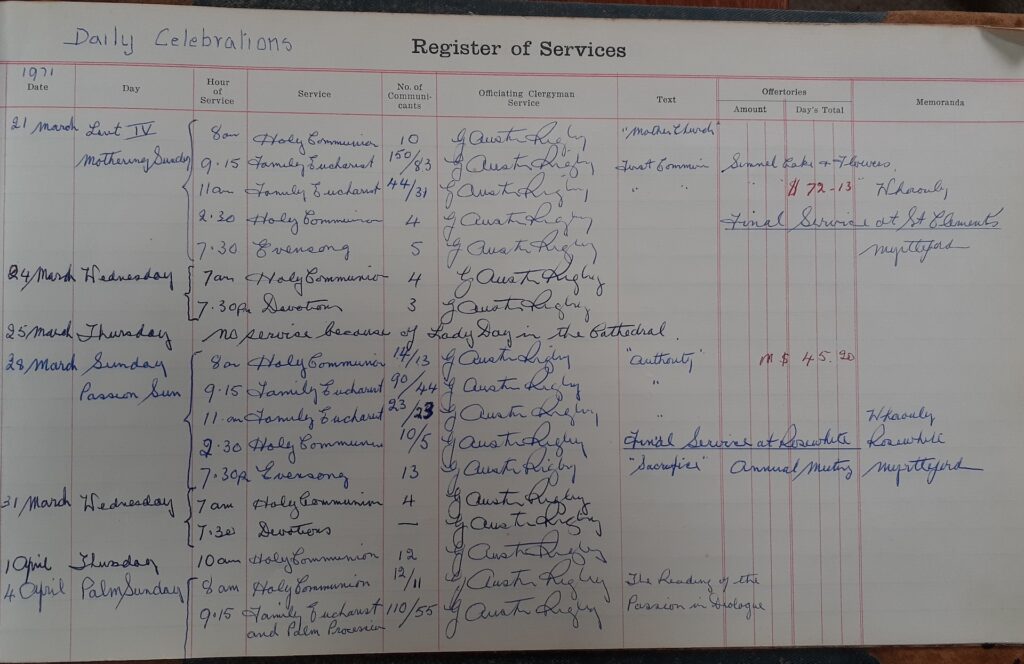 Daily Celebrations
Register of Services
1971
Date Day Hour of Service Service No. of Communicants Officiating Clergyman Service Text Offertories Amount Day's Total Memoranda
21 March Lent IV 8am Holy Communion 10 G Austin Rigby "Mother Church"
Mothering Sunday 9.15 Family Eucharist 150/83 G Austin Rigby Simnel Cake & Flowers
11am Family Eucharist 44/31 G Austin Rigby " " " $ 72-13 Whorouly
2.30 Holy Communion 4 G Austin Rigby Final Service at St Clements
7.30 Evensong 5 G Austin Rigby Myrtleford
24 March Wednesday 7am Holy Communion 4 G Austin Rigby
7.30pm Devotions 3 G Austin Rigby
25 March Thursday no service because of Lady Day in the Cathedral.
28 March Sunday 8am Holy Communion 14/13 G Austin Rigby "Authority" $ 45.20
Passion Sun 9.15 Family Eucharist 90/44 G Austin Rigby "
11.am Family Eucharist 23/23 G Austin Rigby " Whorouly
2.30 Holy Communion 10/5 G Austin Rigby Final Service at Rosewhite Rosewhite
7.30p Evensong 13 G Austin Rigby "Sacrifice" Annual Meeting Myrtleford
31 March Wednesday 7am Holy Communion 4 G Austin Rigby
7.30 Devotions — G Austin Rigby
1 April Thursday 10am Holy Communion 12 G Austin Rigby
4 April Palm Sunday 8am Holy Communion 12/11 G Austin Rigby The Reading of the
9.15 Family Eucharist 110/55 G Austin Rigby Passion in Dialogue
and Palm Procession